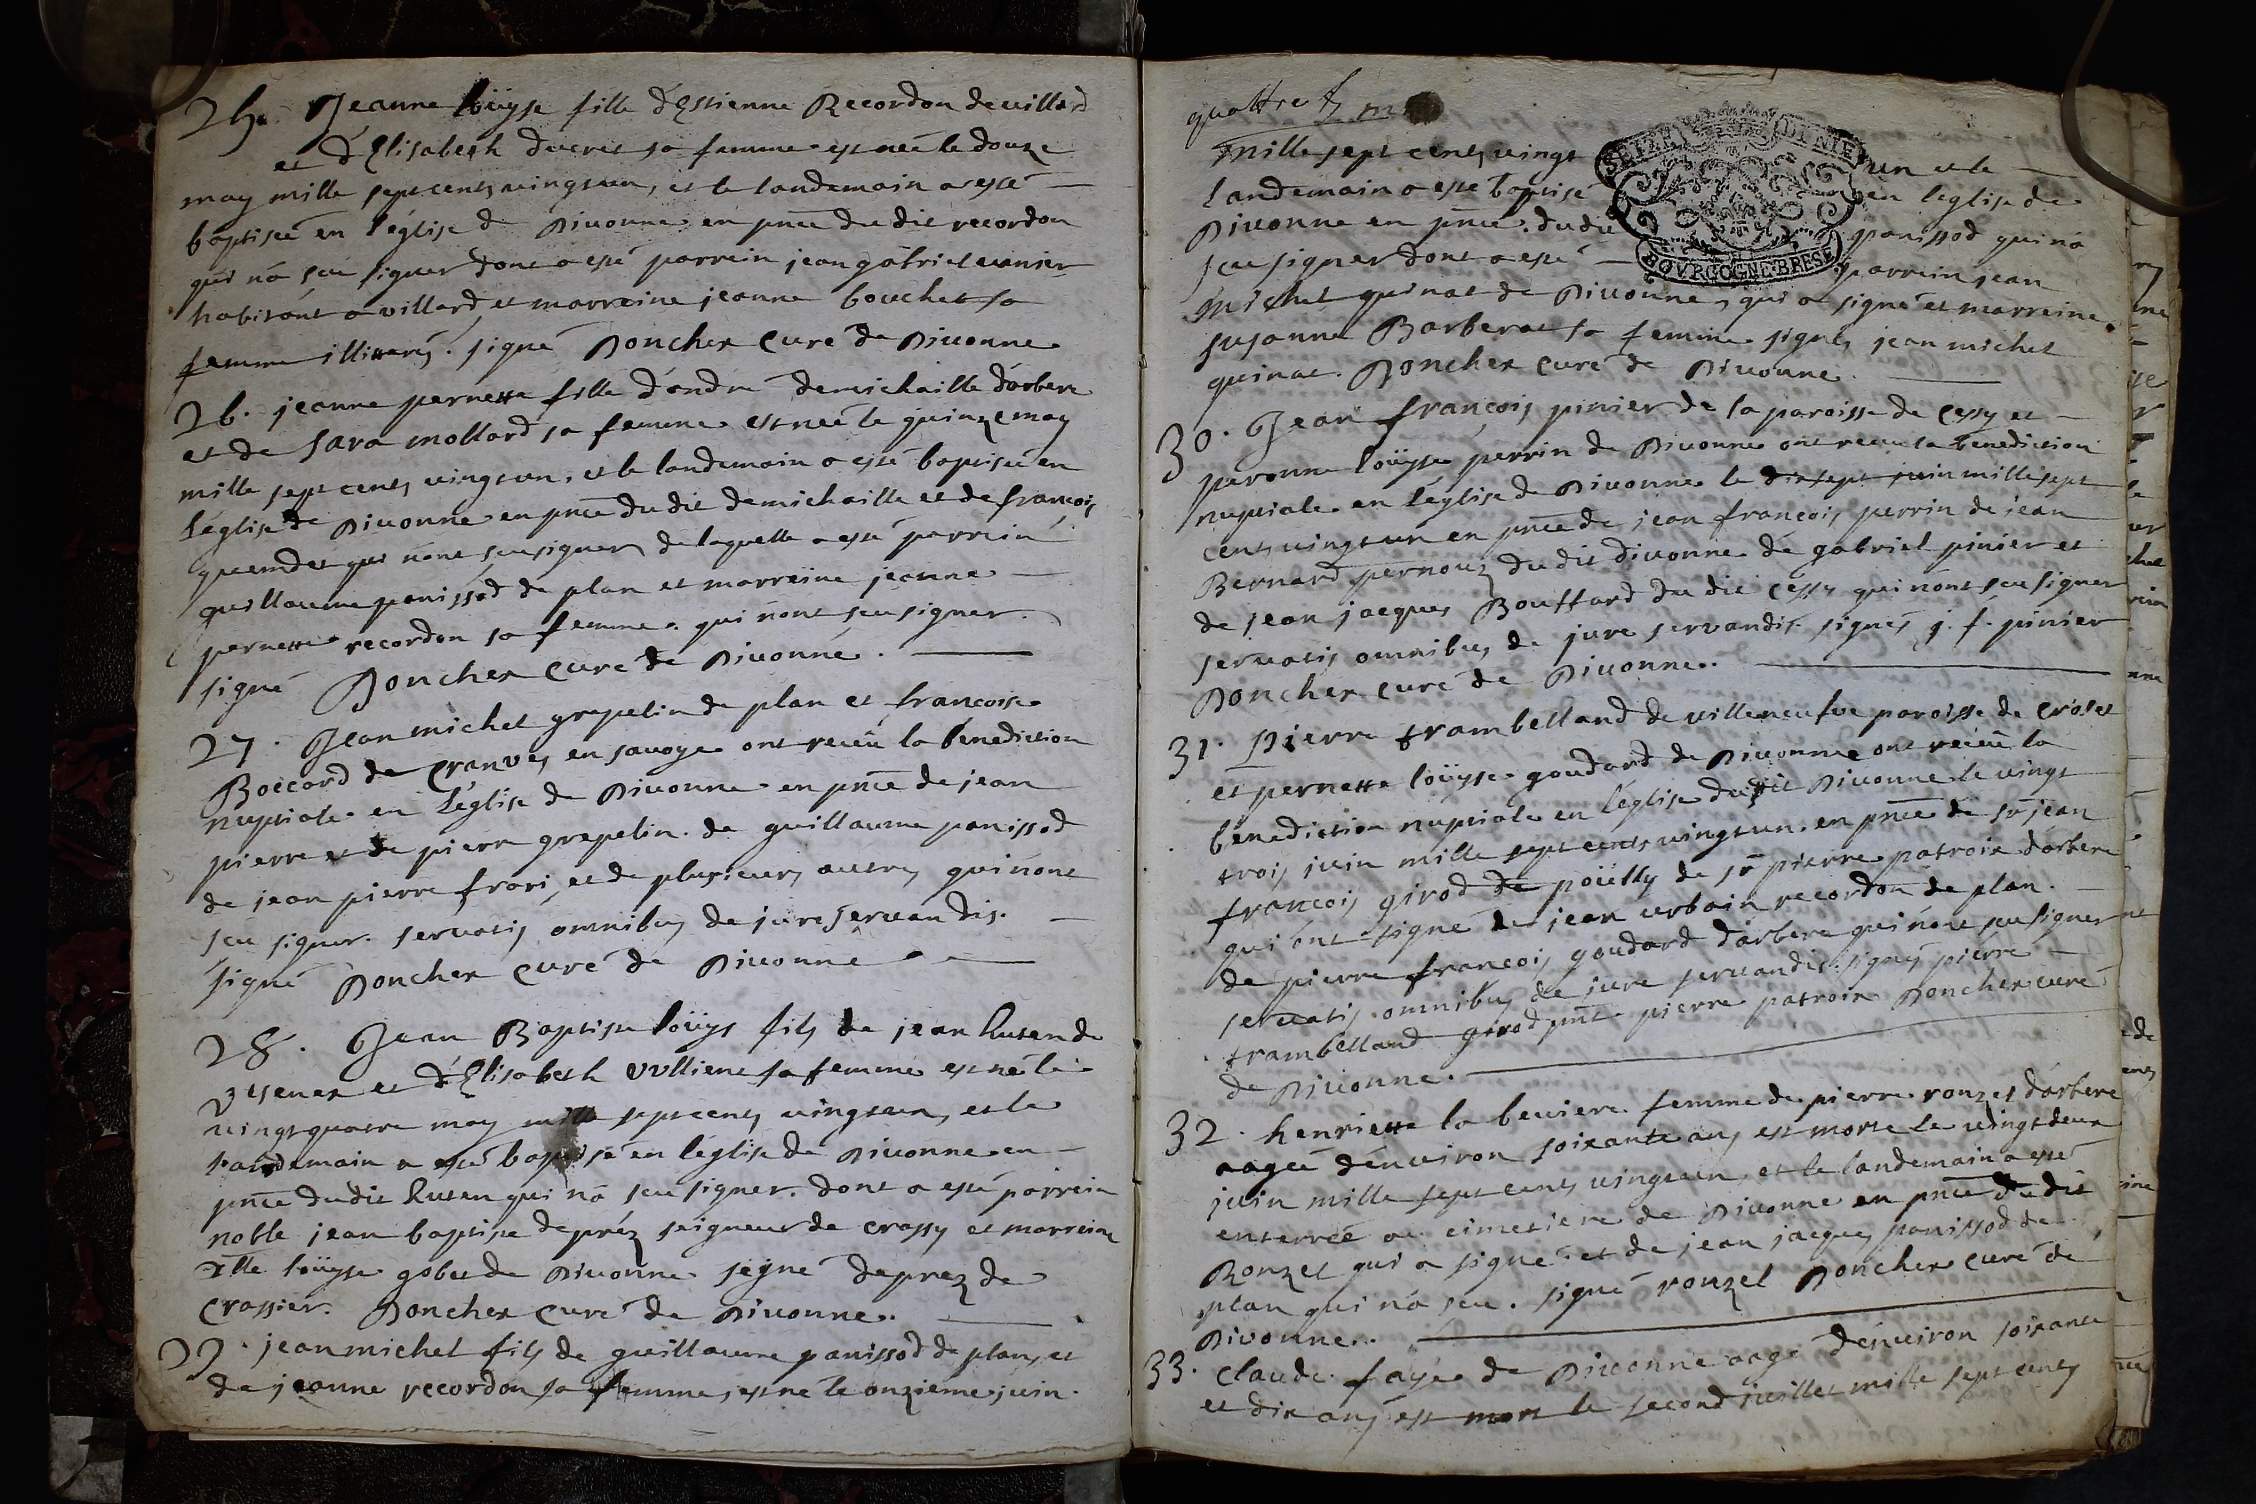 25. Jeanne loüyse fille d'Estienne Recordon de villard
et d'Elisabeth ducret sa femme est née le douze
may mille sept cents vingt un, et le landemain a esté
baptisée en l'église de Divonne en pnce du dit recordon
qui n'a sçu signer dont a esté parrein jean gabriel
habitant a villard, et marreine jeanne bouchet sa
femme illitterés. signé Poncher Curé de Divonne
26. jeanne pernette fille d'andre demichaille d'arbere
et de Sara mollard sa femme est née le quinze may
mille sept cents vingt un, et le landemain a esté baptisée en
l'église de Divonne en pnce du dit demichaille et de françois
qui n'ont sçu signer, de laquelle a esté parrein
guillaume panissod de plan et marreine jeanne
pernette recordon sa femme qui n'ont sçu signer.
signé Poncher Curé de Divonne.
27. Jean michel grepelin de plan et françoise
Boccard de Cranves en savoye ont receu la bénediction
nuptiale en l'église de Divonne en pnce de jean
pierre et de pierre grepelin de guillaume panissod
de jean pierre frari, et de plusieurs autres qui n'ont
sçu signer. servatis omnibus de jure servandis.
signé Poncher Curé de Divonne
28. Jean Baptiste loüys fils de jean Huten de
et d'Elisabeth vvlliene sa femme est né le
vingt quatre may mille sept cents vingt un, et le
landemain a esté baptisé en l'église de Divonne en
pnce du dit Huten qui n'a sçu signer. dont a esté parrein
noble jean baptiste de préz seigneur de crassy et marreine
dlle loüyse gobet de Divonne signé deprez de
Crassier. Poncher Curé de Divonne.
29. jean michel fils de guillaume panissod de plan, et
de jeanne recordon sa femme, est né le onzieme juin
quattre
mille sept cents vingt un et le
landemain a esté baptisé en l'eglise de
Divonne en pnce. du dit panissod qui n'a
sçu signer dont a esté parrein jean
michel quinat de Divonne, qui a signé et marreine
susanne Barberat sa femme signés jean michel
quinat. Poncher Curé de Divonne.
30. Jean françois pinier de la paroisse de Cessy et
peronne loüyse perrin de Divonne ont receu la bénediction
nuptiale en l'église de Divonne le dix sept juin mille sept
cents vingt un en pnce de jean françois perrin de jean
Bernard pernouz du dit divonne de gabriel pinier et
de jean jacques Bouffard du dit Cessy qui n'ont sçu signer
servatis omnibus de jure servandis. signés j. f. pinier
Poncher Curé de Divonne.
31. Pierre trambelland de villeneufve paroisse de Croset
et pernette loüyse goudard de Divonne ont receu la
benediction nuptiale en l'église du dit Divonne le vingt
trois juin mille sept cents vingt un. en pnce de sr jean
françois girod de poüilly de sr pierre patroix d'arbere
qui ont signé de jean urbain recordon de plan.
de pierre françois goudard d'arbere qui n'ont sçu signer
servatis omnibus de jure servandis. signés pierre
trambelland girod pnt pierre patroix Poncher curé
de Divonne.
32. henriette la beviere femme de pierre ronzel d'arbere
aagée d'enviiron soixante ans est morte le vingt deux
juin mille sept cents vingt un, et le landemain a esté
enterrée au cimetiere de Divonne en pnce du dit
Ronzel qui a signé et de jean jacques panissod de
plan qui n'a sçu. signé ronzel Poncher Curé de
Divonne.
33. Claude faye de Divonne aagé d'environ soixante
et dix ans est mort le second juillet mille sept cents